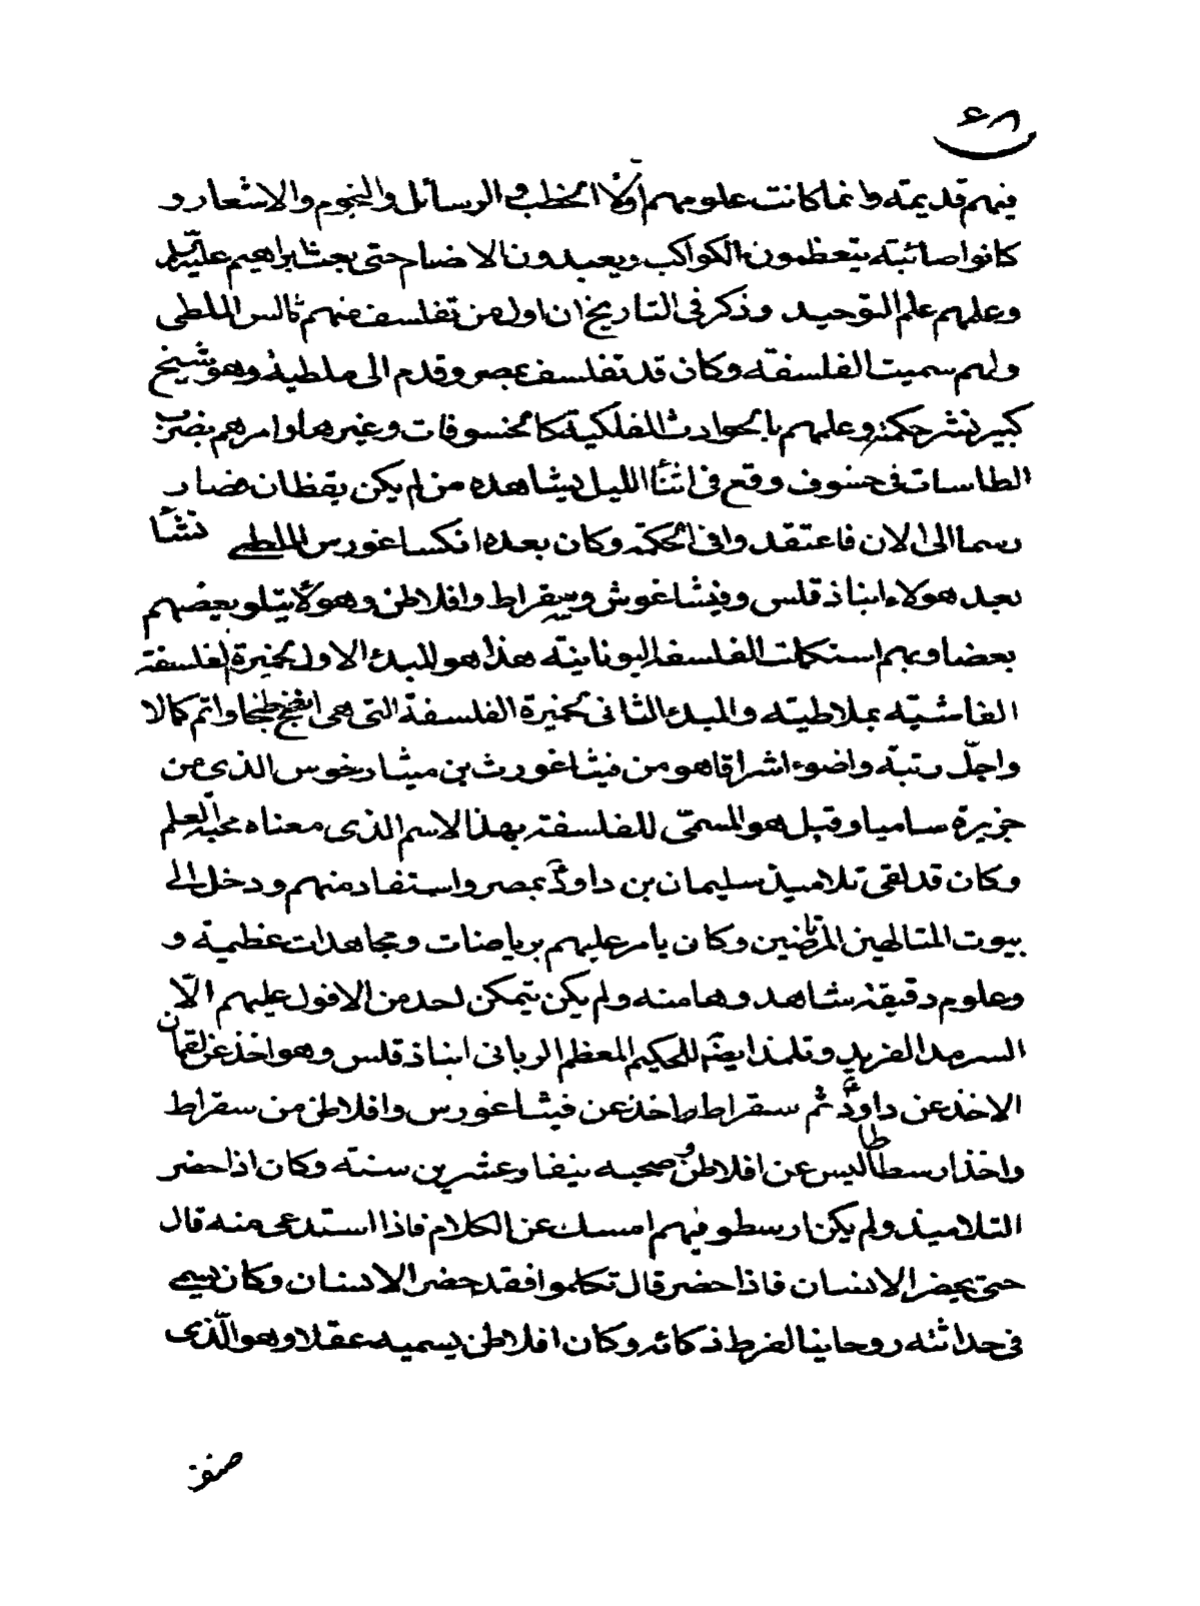 ٤٨
فيهم قديمة وانما كانت علومهم اوّلا الخطب والرسائل والنجوم والاشعار و
كانوا صائبة يتعظمون الكواكب ويعبدون الاصنام حتى بعث ابراهيم عليه السلم
وعلمهم علم التوحيد وذكر فى التاريخ ان اول من تفلسف منهم ثالس الملطى
ولهم سميت الفلسفة وكان قد تفلسف بمصر وقدم الى ملطية وهو شيخ
كبير نشر حكمته وعلمهم بالحوادث الفلكية كالخسوفات وغيرها وامرهم بضرب
الطاسات فى خسوف وقع فى اثنآ الليل ليشاهده من لم يكن يقظان فصار
رسما الى الان فاعتقدوا فى الحكمة وكان بعده انكساغورس الملطى نشأ
بعد هولاء ابناذقلس وفيثاغوش وسقراط وافلاطن وهولآ يتلو بعضهم
بعضا وبهم استكملت الفلسفة اليونانية هذا هو المبدء الاول لخميرة الفلسفة
الفاشية بملاطية والمبدء الثانى لخميرة الفلسفة التى هى انضج طبخا واتم كمالا
واجلّ رتبة واضوء اشراقا هو من فيثاغورث بن ميثارخوس الذى من
جزيرة ساميا وقيل هو المسمّى للفلسفة بهذا الاسم الذى معناه محبة العلم
وكان قد لقى تلاميذ سليمان بن داودؑ بمصر واستفاد منهم ودخل الى
بيوت المتالهين المرتاضين وكان يامر عليهم برياضات ومجاهدات عظيمة و
وعلوم دقيقة شاهدوها منه ولم يكن يتمكن لحد من الافول عليهم الّا
السرمد الفريد وتلمذ ايضًا للحكيم المعظم الربانى ابناذقلس وهو اخذ عن لقمان
الاخذ عن داودؑ ثم سقراط اخذ عن فيثاغورس وافلاطن من سقراط
واخذ ارسطاطاليس عن افلاطن وصحبه نيفا وعشرين سنة وكان اذا حضر
التلاميذ ولم يكن ارسطو فيهم امسك عن الكلام فاذا استدعى منه قال
حتى يحضر الانسان فاذا حضر قال تكلموا فقد حضر الانسان وكان يسمى
فى حداثته روحانيا لفرط ذكائه وكان افلاطن يسميه عقلا وهو الّذى